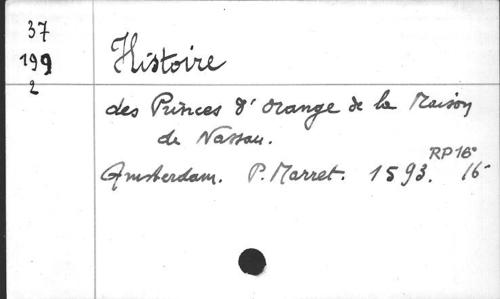 37
199
2
Histoire
des Princes d'Orange de la Maison
de Nassau.
RP16°
Amsterdam. P. Marret. 1593. 16°